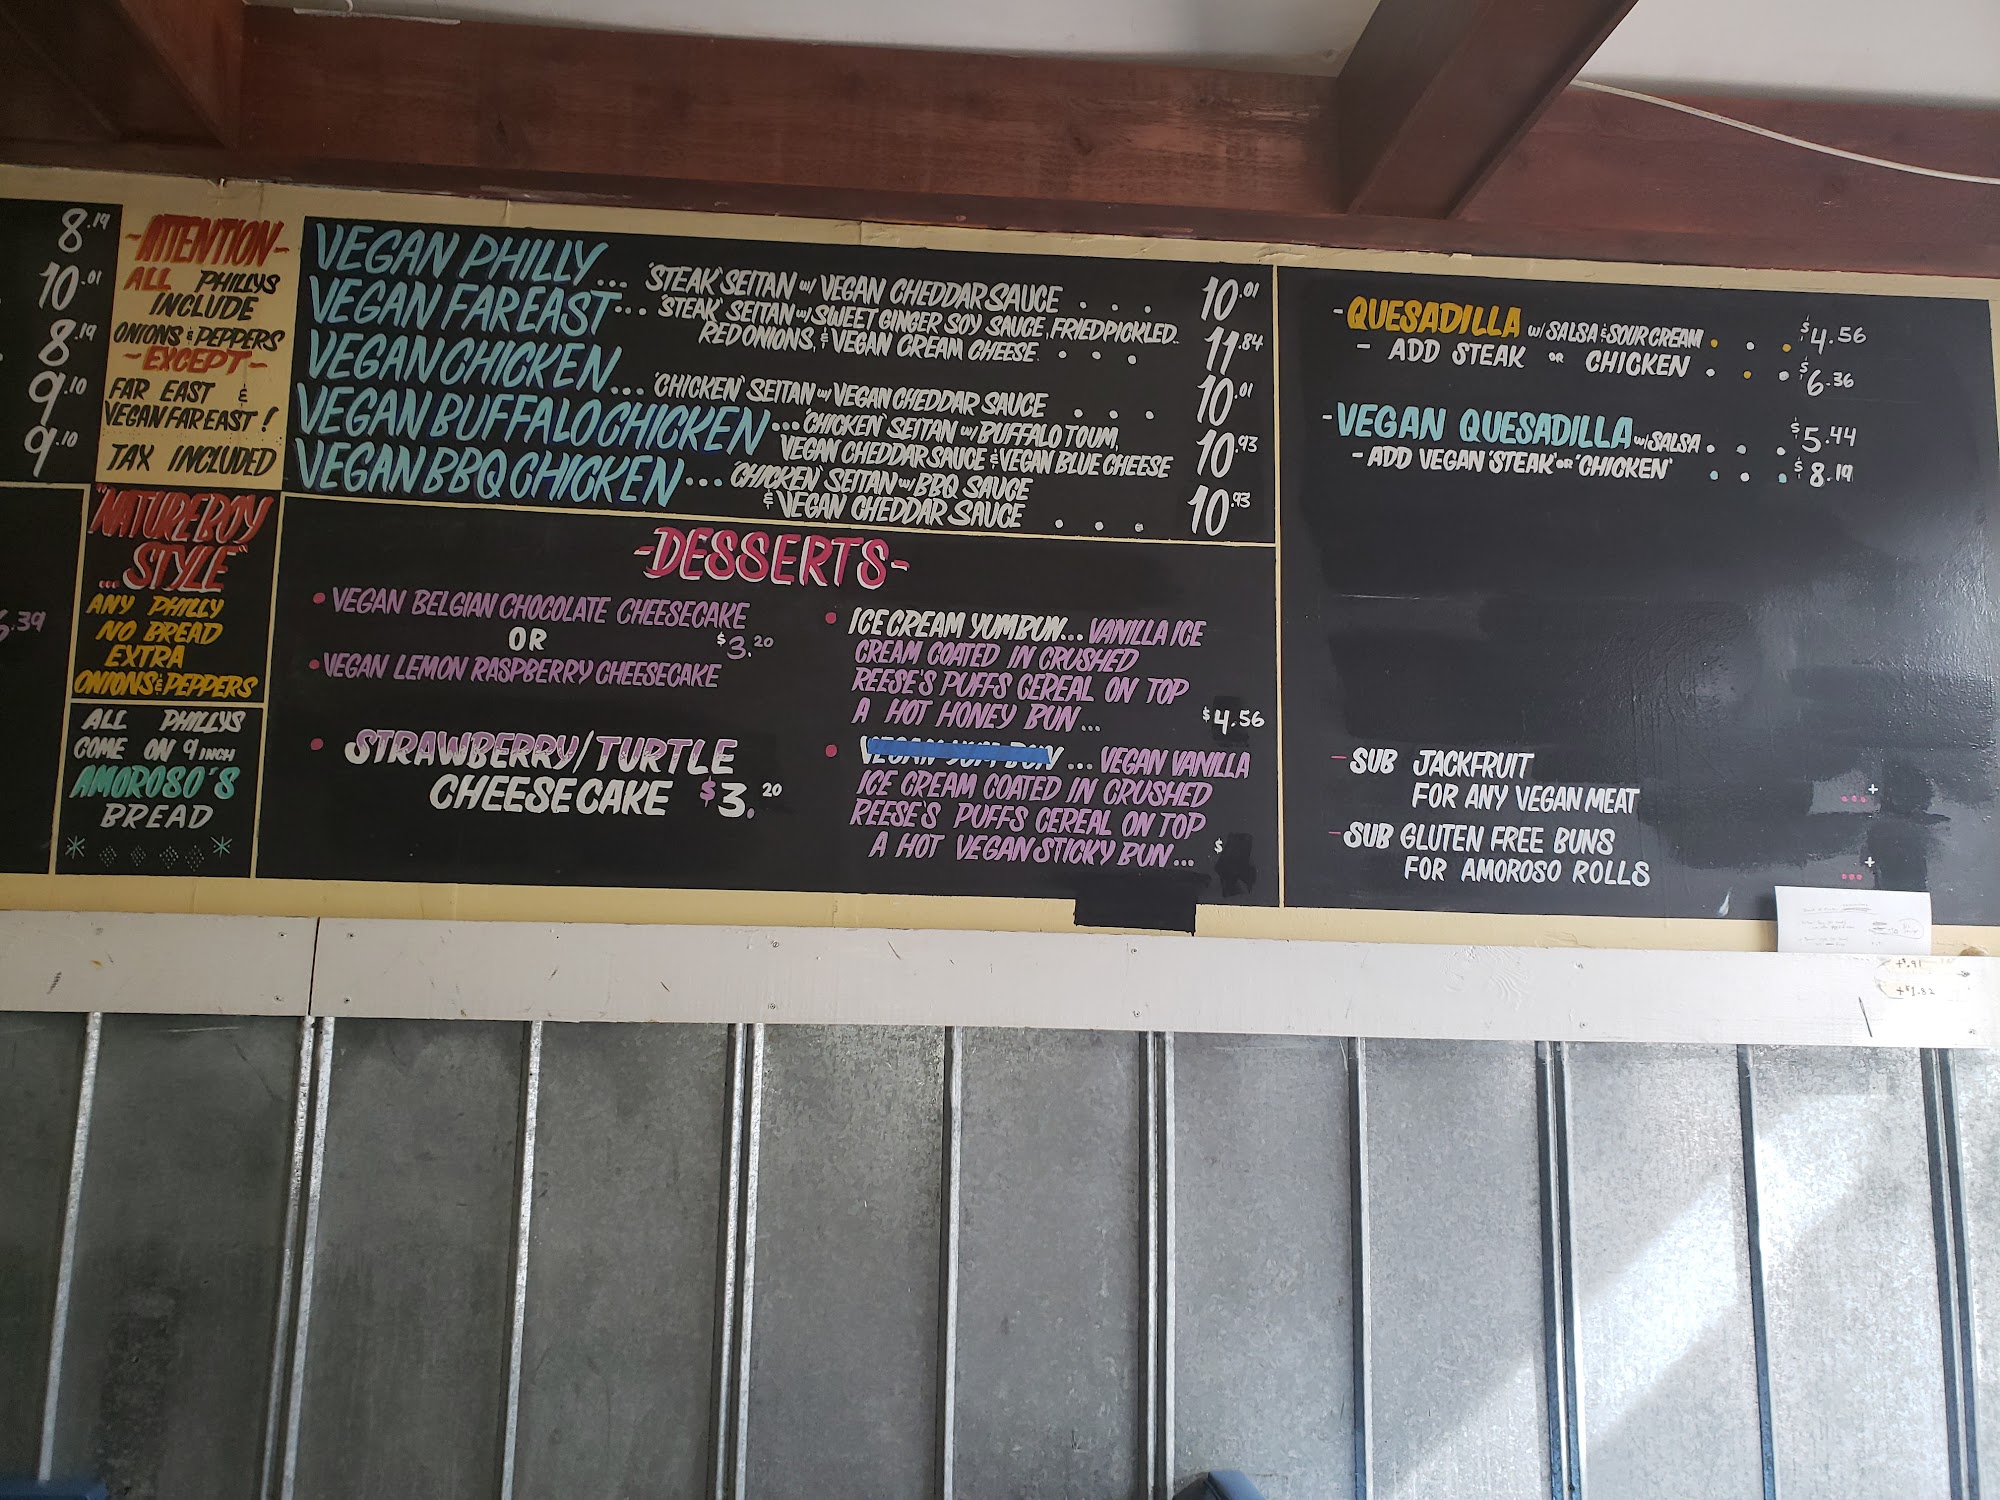 8.19
10.01
8.19
9.10
9.10
-ATTENTION-
ALL PHILLYS
INCLUDE
ONIONS & PEPPERS
-EXCEPT-
FAR EAST &
VEGAN FAR EAST!
TAX INCLUDED
"NATUREBOY
STYLE"
...
ANY PHILLY
NO BREAD
EXTRA
ONIONS & PEPPERS
.39
ALL PHILLYS
COME ON 9 INCH
AMOROSO'S
BREAD
VEGAN PHILLY... 'STEAK' SEITAN w/ VEGAN CHEDDAR SAUCE . . . 10.01
VEGAN FAR EAST... 'STEAK' SEITAN w/ SWEET GINGER SOY SAUCE, FRIED PICKLED
RED ONIONS, & VEGAN CREAM CHEESE . . . 11.84
VEGAN CHICKEN... 'CHICKEN' SEITAN w/ VEGAN CHEDDAR SAUCE . . . 10.01
VEGAN BUFFALO CHICKEN ... 'CHICKEN' SEITAN w/ BUFFALO TOUM,
VEGAN CHEDDAR SAUCE & VEGAN BLUE CHEESE 10.93
VEGAN BBQ CHICKEN... 'CHICKEN' SEITAN w/ BBQ SAUCE
& VEGAN CHEDDAR SAUCE . . . 10.93
-DESSERTS-
• VEGAN BELGIAN CHOCOLATE CHEESECAKE
OR $3.20
• VEGAN LEMON RASPBERRY CHEESECAKE
• STRAWBERRY/TURTLE
CHEESECAKE $3.20
• ICE CREAM YUM BUN... VANILLA ICE
CREAM COATED IN CRUSHED
REESE'S PUFFS CEREAL ON TOP
A HOT HONEY BUN... $4.56
• VEGAN YUM BUN ... VEGAN VANILLA
ICE CREAM COATED IN CRUSHED
REESE'S PUFFS CEREAL ON TOP
A HOT VEGAN STICKY BUN... $
- QUESADILLA w/ SALSA & SOUR CREAM . . . $4.56
- ADD STEAK OR CHICKEN . . . $6.36
- VEGAN QUESADILLA w/ SALSA . . . $5.44
- ADD VEGAN 'STEAK' OR 'CHICKEN' . . . $8.19
- SUB JACKFRUIT
FOR ANY VEGAN MEAT ... +
- SUB GLUTEN FREE BUNS
FOR AMOROSO ROLLS ... +
+$.91
+$1.82